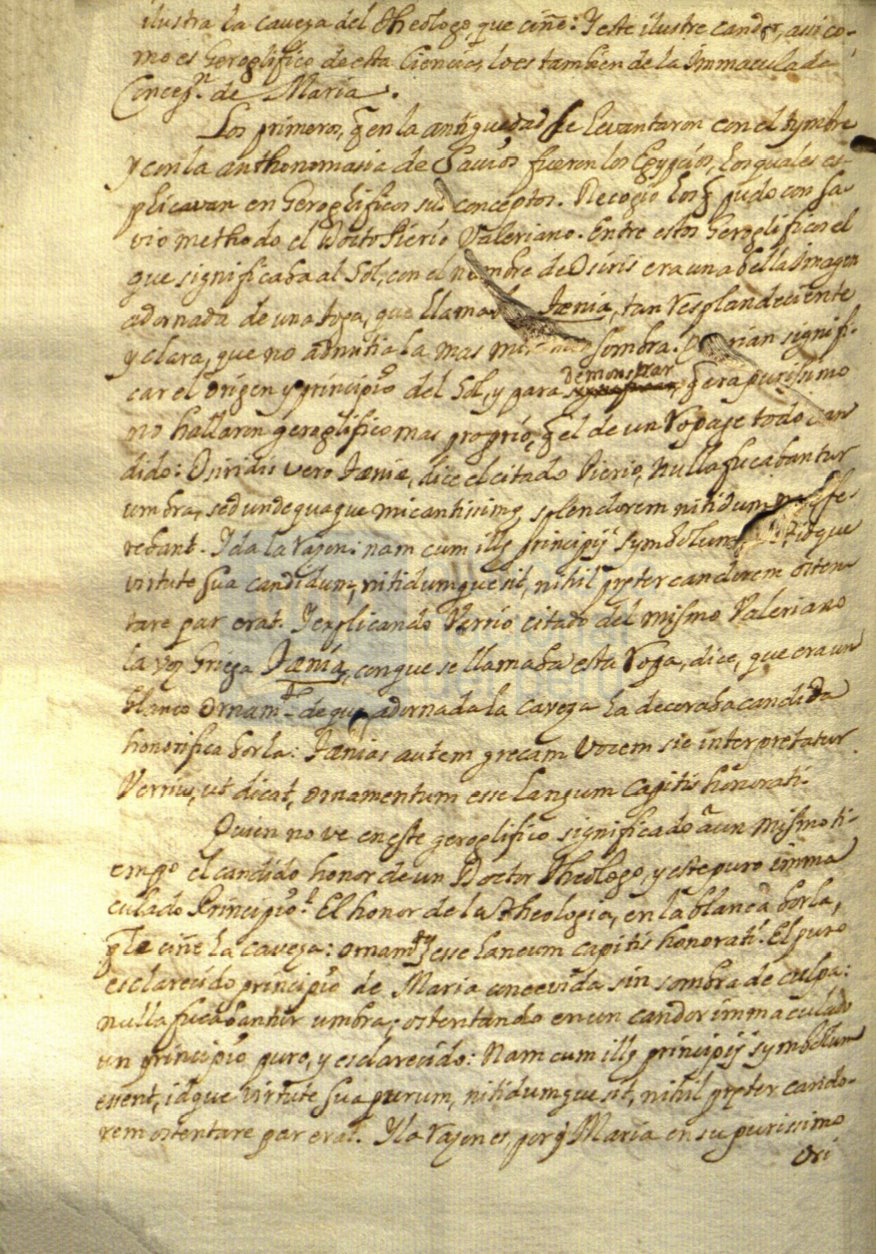 ilustra la caveza del Theologo, que ciñe: I este ilustre candor, asi co-
mo es Geroglifico de esta Ciencia, lo es tambien de la Immaculada
Concepn. de Maria.
Los primeros, q̃ en la antiguedad se levantaron con el tymbre
y con la anthonomasia de Savios fueron los Egypcios, los quales es-
plicavan en Geroglificos sus conceptos. Recogio los q̃ pudo con sa-
vio methodo el Docto Pierio Valeriano. Entre estos Geroglificos el
que significaba al Sol, con el nombre de Osiris era una bella Imagen
adornada de una toga, que llamaba Tænia, tan resplandeciente
y clara, que no admitia la mas minima sombra. Querian signifi-
car el origen y principio del Sol, y para demonstrar, q̃ era purissimo
no hallaron geroglifico mas proprio, q̃ el de un ropaje todo can
dido: Osiridis vero Tæniæ, dice el citado Pierio, nulla fucabantur
umbra, sed undequaque micantissimũ splendorem nitidum
rebant. I da la razon: nam cum illę principij symbolum idque
virtute sua candidum, nitidumque sit, nihil pręter candorem osten-
tare par erat. I explicando Verrio citado del mismo Valeriano
la voz Griega Tænia, con que se llamaba esta Toga, dice, que era un
blanco ornamto. de que adornada la caveza la decoraba candida
honorifica borla: Tænias autem grecam vocem sic interpretatur
Verrius, ut dicat, ornamentum esse laneum capitis honorati.
Quien no ve en este geroglifico significado â un mismo ti-
empo el candido honor de un Doctor Theologo, y este puro imma
culado Principio? El honor de la Theologia, en la blanca borla,
q̃ le ciñe la caveza: ornamtũ esse laneum capitis honorati. El puro
esclarecido principio de Maria concevida sin sombra de culpa:
nulla fucabantur umbra; ostentando en un candor immaculado
un principio puro, y esclarecido: Nam cum illę principij symbolum
essent, idque virtute sua purum, nitidumque sit, nihil pręter cando-
rem ostentare par erat. I la razon es, porq̃ Maria en su purissimo
ori